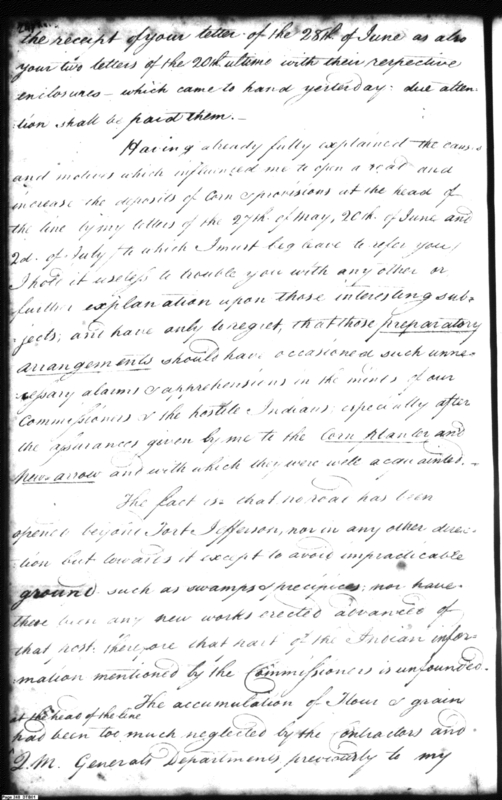 the receipt of your letter of the 28th of June as also
your two letters of the 20th ultimo with their respective
enclosures – which came to hand yesterday: due atten-
tion shall be paid them. –
Having already fully explained the causes
and motives which influenced me to open a road and
increase the deposits of Corn & provisions at the head of
the line by my letters of the 27th of May, 20th of June and
2d. of July, to which I must beg leave to refer you,
I hold it useless to trouble you with any other or
further explanation upon those interesting sub-
jects; and have only to regret, that those preparatory
arrangements should have occasioned such unne-
cessary alarms & apprehensions in the minds of our
Commissioners & the hostile Indians, especially after
the assurances given by me to the Corn planter and
New arrow and with which they were well acquainted. –
The fact is that no road has been
opened beyond Fort Jefferson, nor in any other direc-
tion but towards it except to avoid impracticable
ground such as swamps & precipices; nor have
there been any new works erected advanced of
that post: therefore that part of the Indian infor-
mation mentioned by the Commissioners is unfounded.
The accumulation of Flour & grain
at the head of the line
had been too much neglected by the Contractors and
Q.M. Generals Departments previously to my